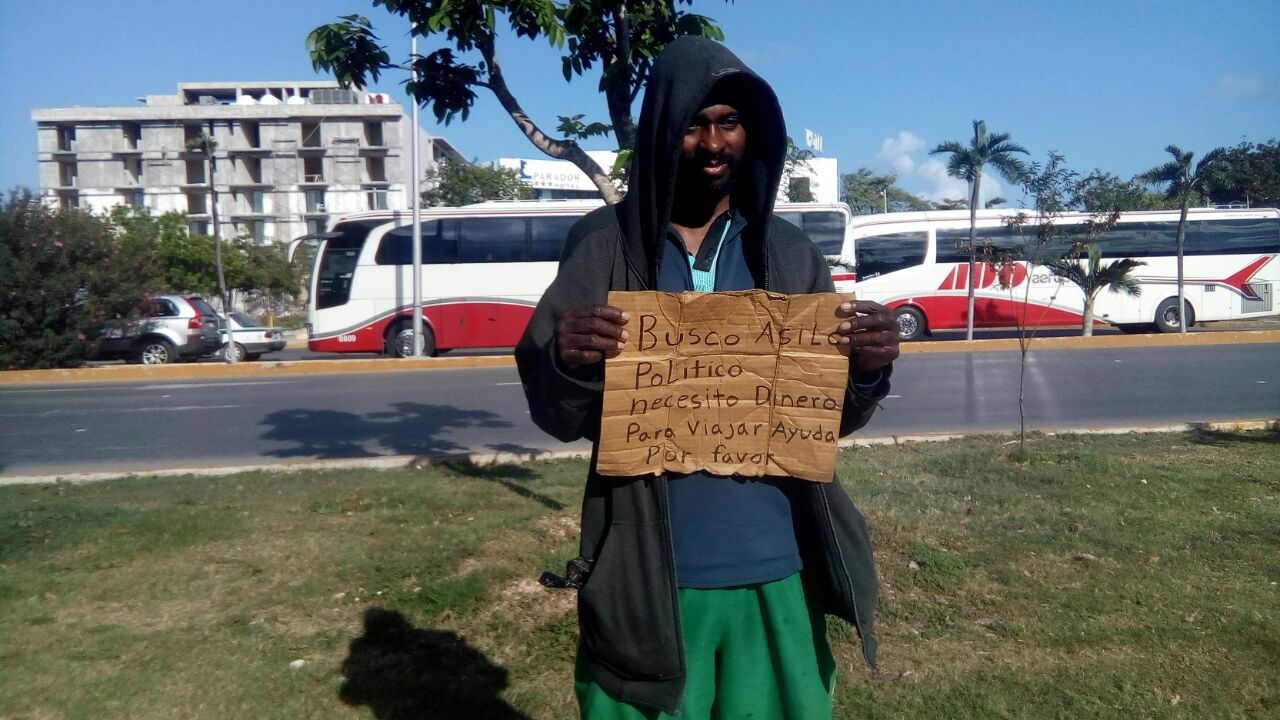 PARADOR
HOTEL
0609
ADO
aero
Busco Asilo
PoLitico
necesito Dinero
Para Viajar Ayuda
Por favor